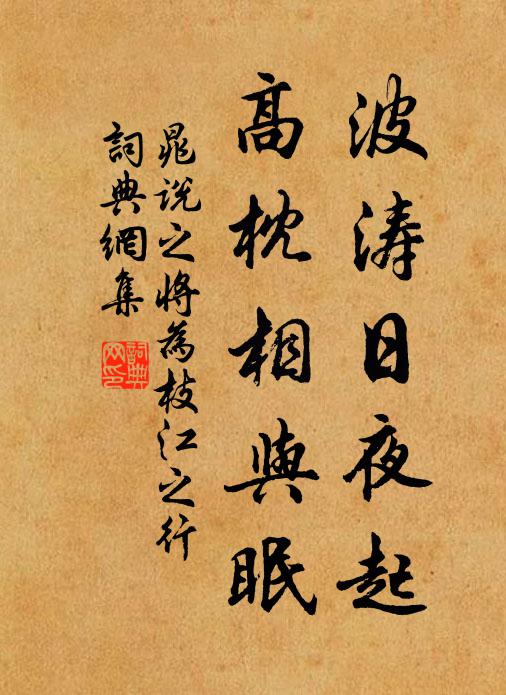 波濤日夜起
高枕相與眠
晁說之將為枝江之行
詞典網集
詞典網印